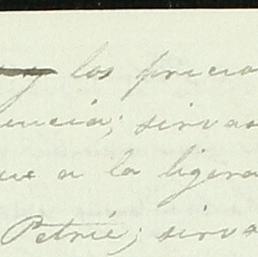 y los precio
encia; sirvas
que a la ligera
Petrié; sirvas